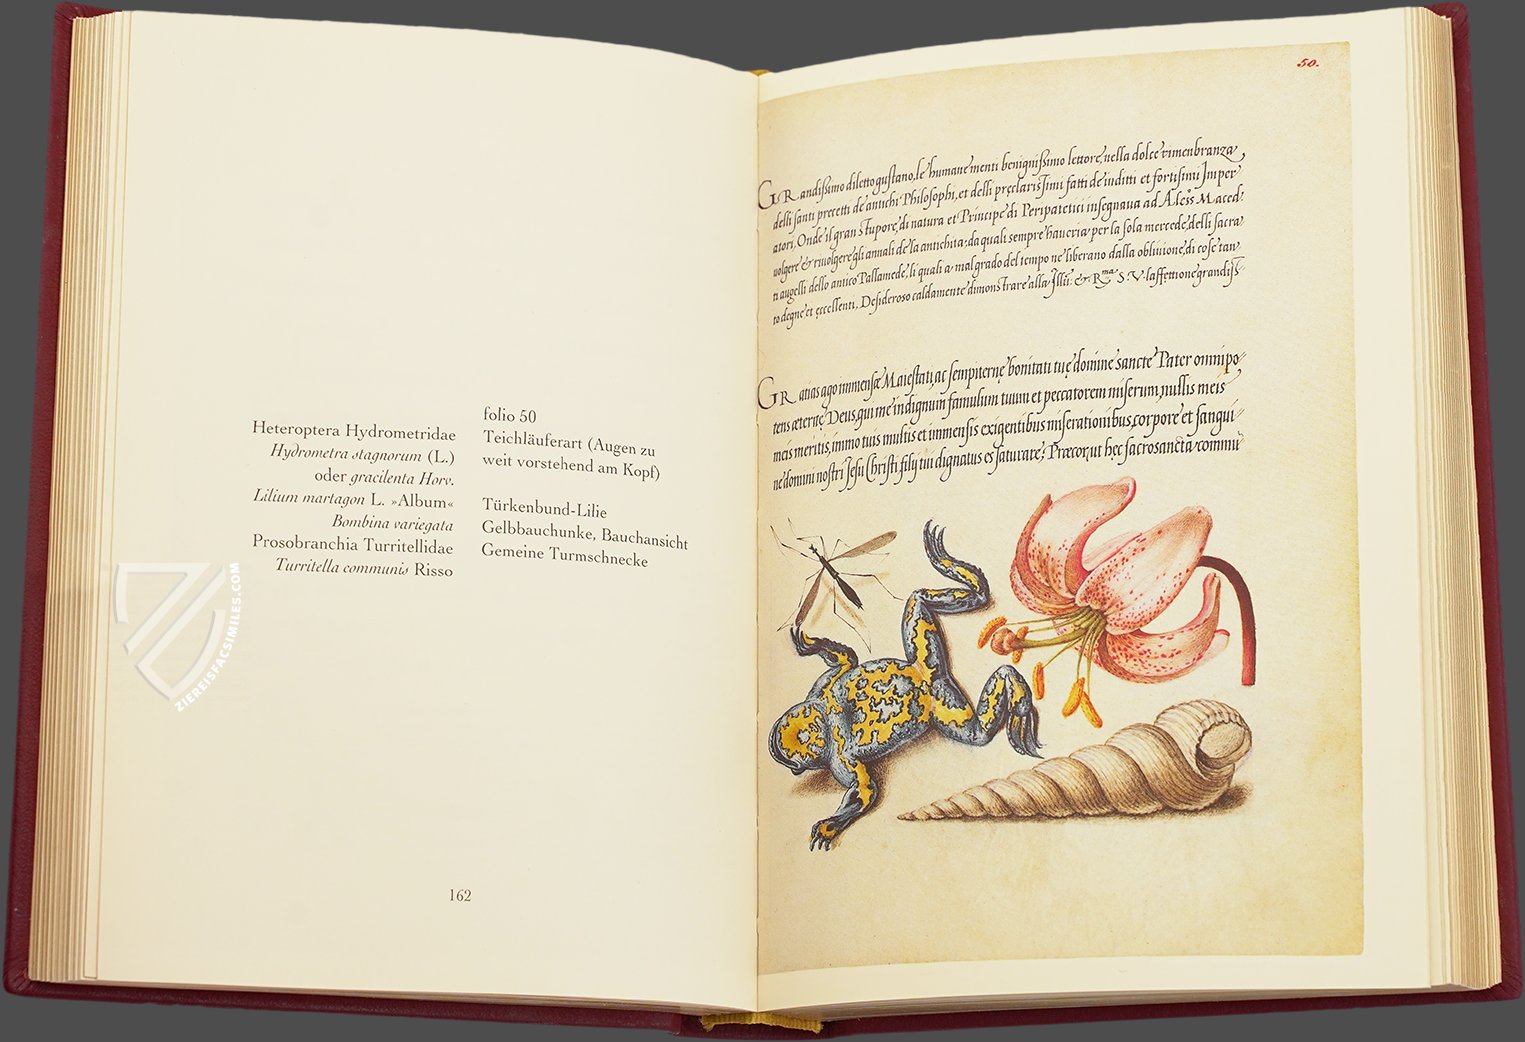 Heteroptera Hydrometridae
Hydrometra stagnorum (L.)
oder gracilenta Horv.
Lilium martagon L. »Album«
Bombina variegata
Prosobranchia Turritellidae
Turritella communis Risso
folio 50
Teichläuferart (Augen zu
weit vorstehend am Kopf)
Türkenbund-Lilie
Gelbbauchunke, Bauchansicht
Gemeine Turmschnecke
162
ZIEREISFACSIMILES.COM
50.
GRandissimo diletto gustano, le humane menti benignissimo lettore, nella dolce rimenbranza
delli santi precetti de antichi Philosophi, et delli preclarissimi fatti de inditti et fortissimi Imper
atori, Onde il gran stupore, di natura et Principe di Peripatetici insegnaua ad Aless Maced:
uolgere & riuolgere gli annali de la antichita: da quali sempre haueria per la sola mercede, delli sacra
ti augelli dello antico Pallamede, li quali a mal grado del tempo ne liberano dalla obliuione, di cose tan
to degne et eccellenti, Desideroso caldamente dimonstrare alla Illu: & Rma S. V. l'affettione grandiss
GRatias ago immensæ Maiestati, ac sempiternę bonitati tuę domine sancte Pater omnipo-
tens æternę Deus, qui me indignum famulum tuum et peccatorem miserum, nullis meis
meis meritis, immo tuis multis et immensis exigentibus miserationibus, corpore et sangui-
ne domini nostri Jesu Christi filij tui dignatus es saturare; Præcor, ut hęc sacrosancta commu